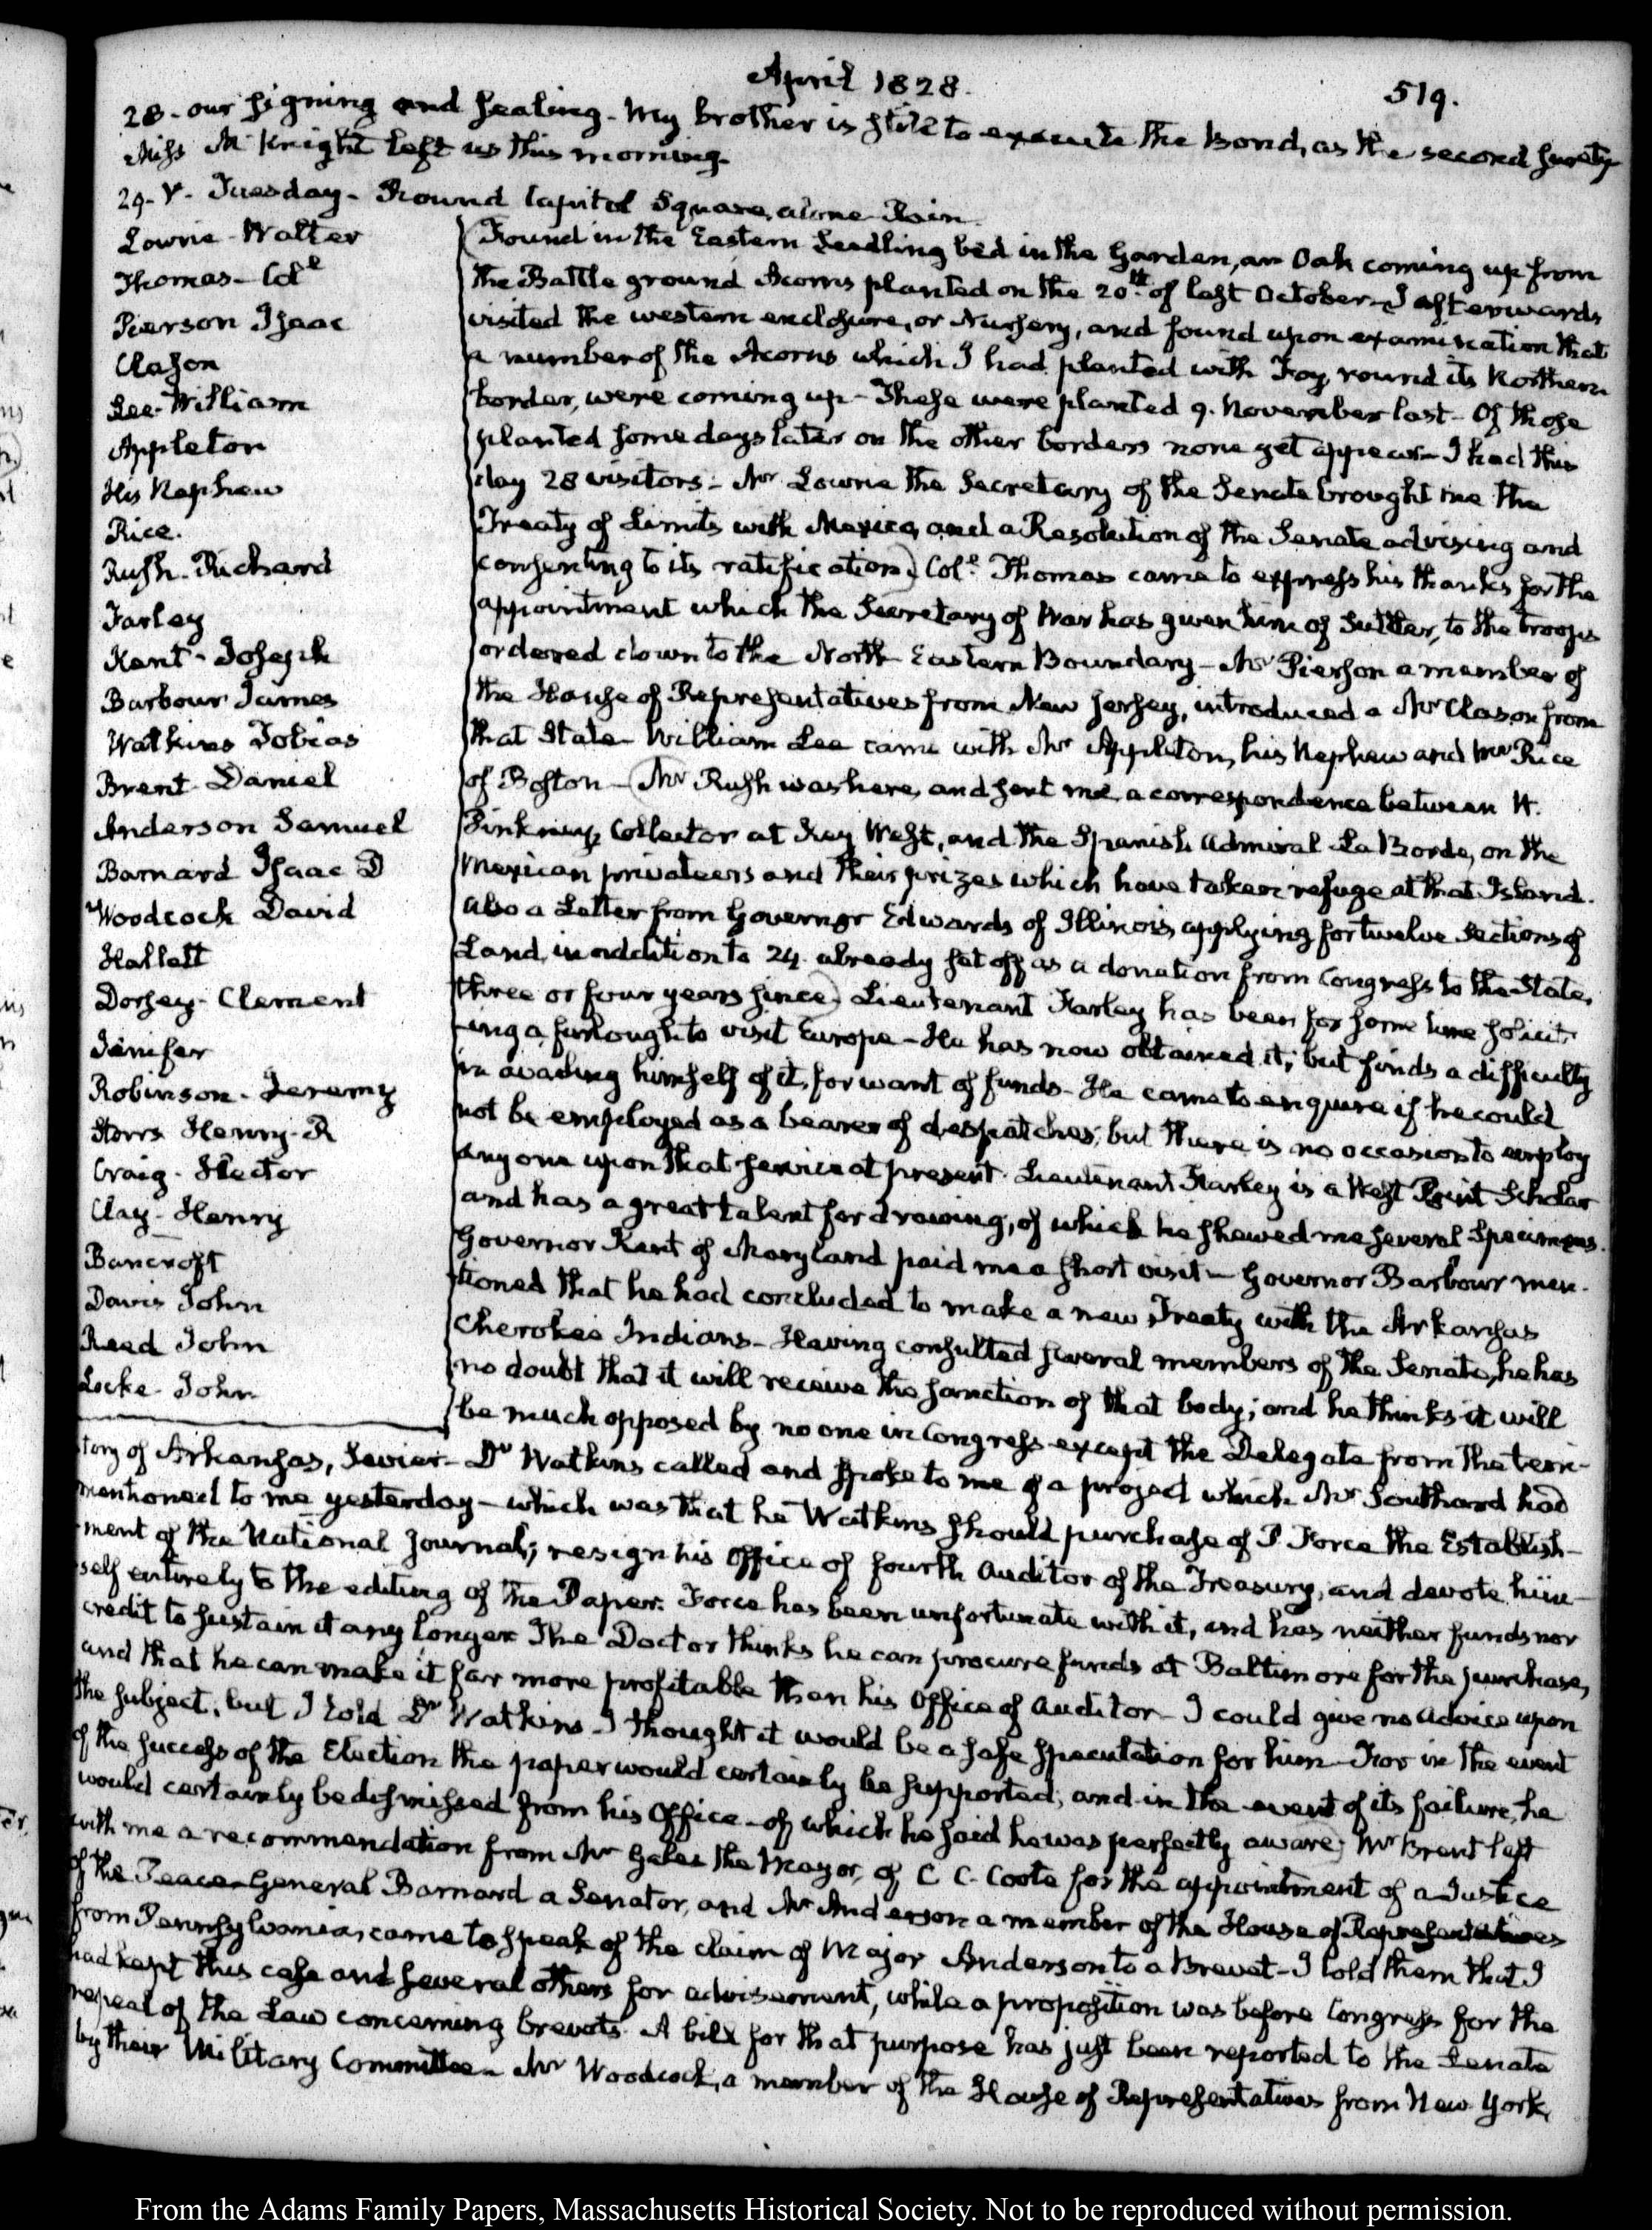 April 1828.
519.
28. our signing and sealing. My brother is still to execute the Bond, as the second surety
Miss McKnight left us this morning.
29. V. Tuesday. Round Capitol Square, alone Rain.
Lowrie Walter
Thomas Col.l
Pierson Isaac
Clason
Lee William
Appleton
His Nephew
Rice.
Rush. Richard
Farley
Kent Joseph
Barbour James
Watkins Tobias
Brent Daniel
Anderson Samuel
Barnard Isaac D
Woodcock David
Hallett
Dorsey Clement
Jenifer
Robinson. Jeremy
Storrs Henry. R
Craig. Hector
Clay. Henry
Bancroft
Davis John
Reed John
Locke John
(Found in the Eastern Seedling bed in the Garden, an Oak coming up from
the Battle ground Acorns planted on the 20th of last October. I afterwards
visited the western enclosure, or Nursery, and found upon examination that
a number of the Acorns which I had planted with Foy, round its Northern
border, were coming up. These were planted 9. November last. Of those
planted some days later on the other borders none yet appear. I had this
day 28 visitors. Mr Lowrie the Secretary of the Senate brought me the
Treaty of Limits with Mexico, and a Resolution of the Senate advising and
consenting to its ratification.) Col.l Thomas came to express his thanks for the
appointment which the Secretary of War has given him of Suttler, to the troops
ordered down to the North Eastern Boundary. Mr Pierson a member of
the House of Representatives from New Jersey, introduced a Mr Clason from
that State. William Lee came with Mr Appleton, his Nephew and Mr Rice
of Boston. (Mr Rush was here, and sent me a correspondence between W.
Pinkney, Collector at Key West, and the Spanish Admiral La Borde, on the
Mexican privateers and their prizes which have taken refuge at that Island.
also a Letter from Governor Edwards of Illinois, applying for twelve Sections of
Land, in addition to 24 already set off as a donation from Congress to the State,
three or four years since.) Lieutenant Farley has been for some time solicit-
-ing a furlough to visit Europe. He has now obtained it; but finds a difficulty
in availing himself of it, for want of funds. He came to enquire if he could
not be employed as a bearer of despatches; but there is no occasion to employ
any one upon that service at present. Lieutenant Farley is a West Point Scholar
and has a great talent for drawing, of which he shewed me several Specimens.
Governor Kent of Maryland paid me a short visit. Governor Barbour men-
tioned that he had concluded to make a new Treaty with the Arkansas
Cherokee Indians. Having consulted several members of the Senate, he has
no doubt that it will receive the sanction of that body; and he thinks it will
be much opposed by no one in Congress except the Delegate from the terri-
tory of Arkansas, Sevier. Dr Watkins called and spoke to me of a project which Mr Southard had
mentioned to me yesterday. which was that he Watkins should purchase of P. Force the Establish-
-ment of the National Journal; resign his Office of fourth Auditor of the Treasury, and devote him-
self entirely to the editing of the Paper. Force has been unfortunate with it, and has neither funds nor
credit to sustain it any longer. The Doctor thinks he can procure funds at Baltimore for the purchase,
and that he can make it far more profitable than his Office of Auditor. I could give no advice upon
the subject, but I told Dr Watkins I thought it would be a safe speculation for him. For in the event
of the success of the Election the paper would certainly be supported; and in the event of its failure, he
would certainly be dismissed from his Office. of which he said he was perfectly aware.) Mr Brent left
with me a recommendation from Mr Gales the Mayor, of C. C. Coote for the appointment of a Justice
of the Peace. General Barnard a Senator, and Mr Anderson a member of the House of Representatives
from Pennsylvania, came to speak of the claim of Major Anderson to a Brevet. I told them that I
had kept this case and several others for advisement, while a proposition was before Congress for the
repeal of the Law concerning brevets. A bill for that purpose has just been reported to the Senate
by their Military Committee. Mr Woodcock, a member of the House of Representatives from New York,
From the Adams Family Papers, Massachusetts Historical Society. Not to be reproduced without permission.